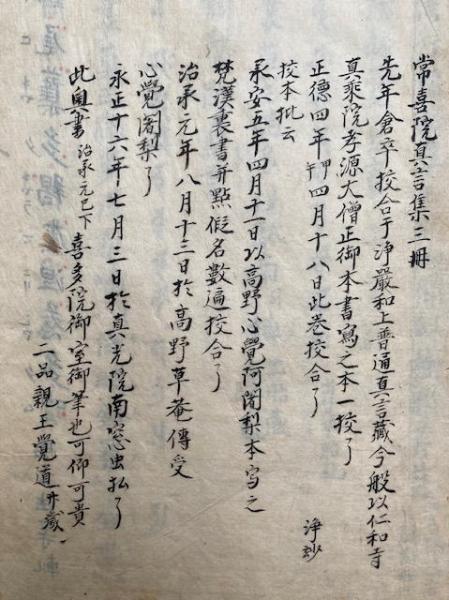 常喜院真言集三冊
先年倉卒挍合于浄嚴和上普通真言藏今般以仁和寺
真乘院孝源大僧正御本書寫之本一挍了
正德四年甲午四月十八日此巻挍合了 浄玅
挍本批云
承安五年四月十一日以高野心覺阿闍梨本寫之
梵漢裏書并點假名數遍挍合了
治承元年八月十三日於高野草菴傳受
心覺闍梨了
永正十六年七月三日於真光院南窓虫払了
此奥書治承元已下喜多院御室御筆也可仰可貴
二品親王覺道